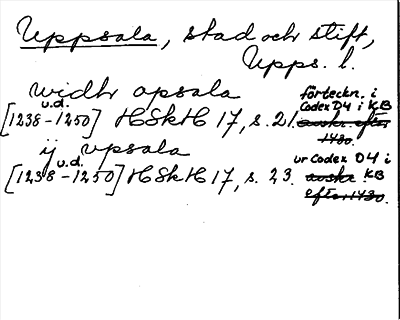 Uppsala, stad och stift,
Upps. l.
widhr opsala
förteckn. i
Codex D4 i KB
u.d.
[1238-1250] HSkH 17, s. 21. avskr. efter
1430.
ij vpsala
u.d.
[1238-1250] HSkH 17, s. 23.
ur Codex D4 i
avskr. KB
efter 1430.